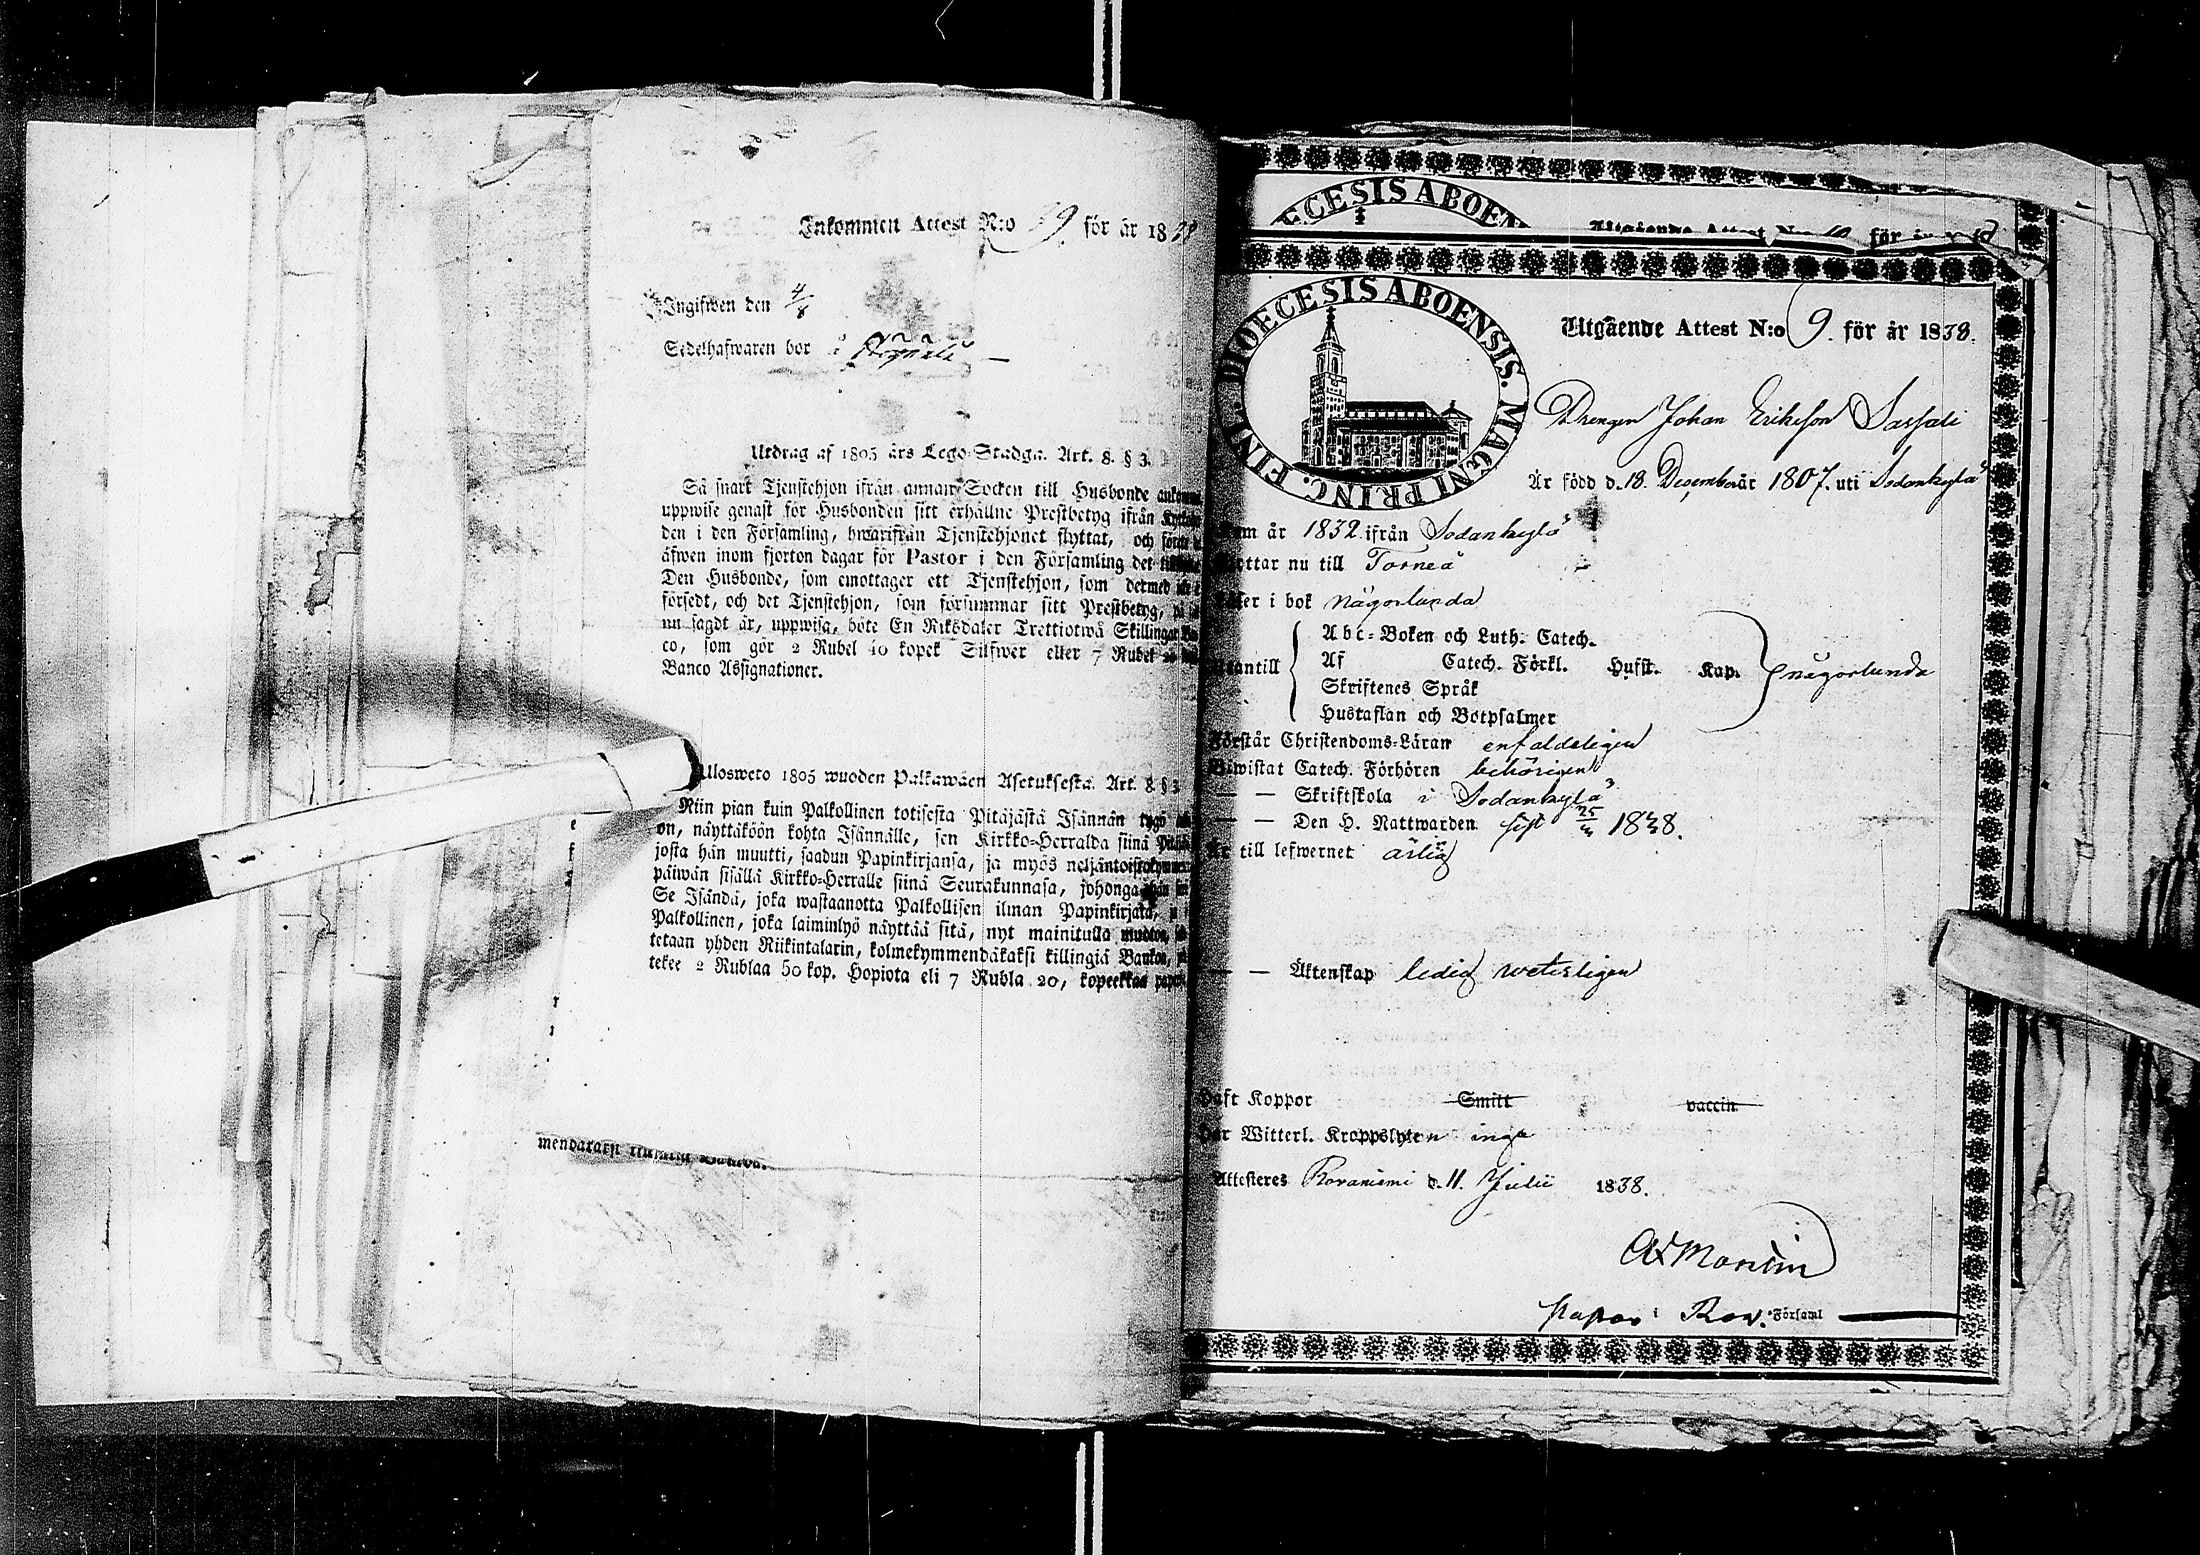 Inkommen Attest N:o 9. för år 1838
Ingifwen den 4/8
Sedelhafwaren bor i
Utdrag af 1805 års Lego-Stadga. Art. 8. § 3.
Så snart Tjenstehjon ifrån annan Socken till Husbonde
uppwise genast för Husbonden sitt erhållne Prestbetyg ifrån
den i den Församling, hwarifrån Tjenstehjonet flyttat, och
äfwen inom fjorton dagar för Pastor i den Församling det
Den Husbonde, som emottager ett Tjenstehjon, som dermed
försedt, och det Tjenstehjon, som försummar sitt Prestbetyg,
nu sagdt är, uppwisa, böte En Riksdaler Trettiotwå Skillingar
co, som gör 2 Rubel 40 kopek Silfwer eller 7 Rubel
Banco Assignationer.
Ulosweto 1805 wuoden Palkawäen Asetuksesta. Art. 8 § 3
Niin pian kuin Palkollinen totisesta Pitäjästä Isännän tygö
on, näyttäköön kohta Isännälle, sen Kirkko-Herralda siinä
josta hän muutti, saadun Papinkirjansa, ja myös neljäntoistakymmenen
päiwän sisällä Kirkko-Herralle siinä Seurakunnasa, johonga
Se Isändä, joka wastaanotta Palkollisen ilman Papinkirjata,
Palkollinen, joka laiminlyö näyttää sitä, nyt mainitulla muotoa,
tetaan yhden Riikintalarin, kolmekymmendäkaksi killingiä Bankoa,
tekee 2 Rublaa 50 kop. Hopiota eli 7 Rubla 20, kopeekkaa
CESIS ABOEN
Utgående Attest N:o 10 för år
DIOECESIS ABOENSIS. MAGNI PRINC. FINL.
Utgående Attest N:o 9. för år 1838.
Drengen Johan Eriksson Sassali
Är född d. 18. Desember år 1807. uti Sodankylä
Kom år 1832. ifrån Sodankylä
Flyttar nu till Torneå
Läser i bok någorlunda
Utantill
Abc-Boken och Luth. Catech.
Af Catech. Förkl. Husst. Kap. någorlunda
Skriftenes Språk
Hustaflan och Botpsalmer
Förstår Christendoms-Läran enfaldeligen
Bewistat Catech. Förhören behörigen
— — Skriftskola i Sodankylä
— — Den H. Nattwarden sist 25/3 1838.
Är till lefwernet ärlig
— — Äktenskap ledig weterligen
Haft Koppor Smitt vaccin
Har Witterl. Kroppslyten inga
Attesteres Rovaniemi d. 11. Julii 1838.
Pastor i Rov. Församl